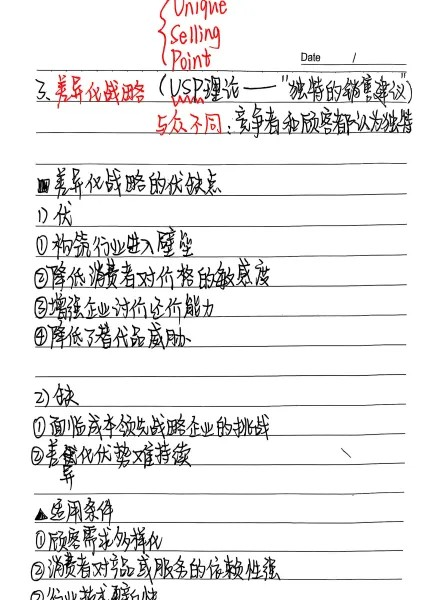 Unique
Selling
Point
Date /
3、差异化战略（USP理论——"独特的销售建议"）
与众不同：竞争者和顾客都认为独特
差异化战略的优缺点
1）优
①构筑行业进入壁垒
②降低消费者对价格的敏感度
③增强企业讨价还价能力
④降低了替代品威胁
2）缺
①面临成本领先战略企业的挑战
②差异化优势难持续
▲适用条件
①顾客需求多样化
②消费者对产品或服务的依赖性强
③行业技术更新快